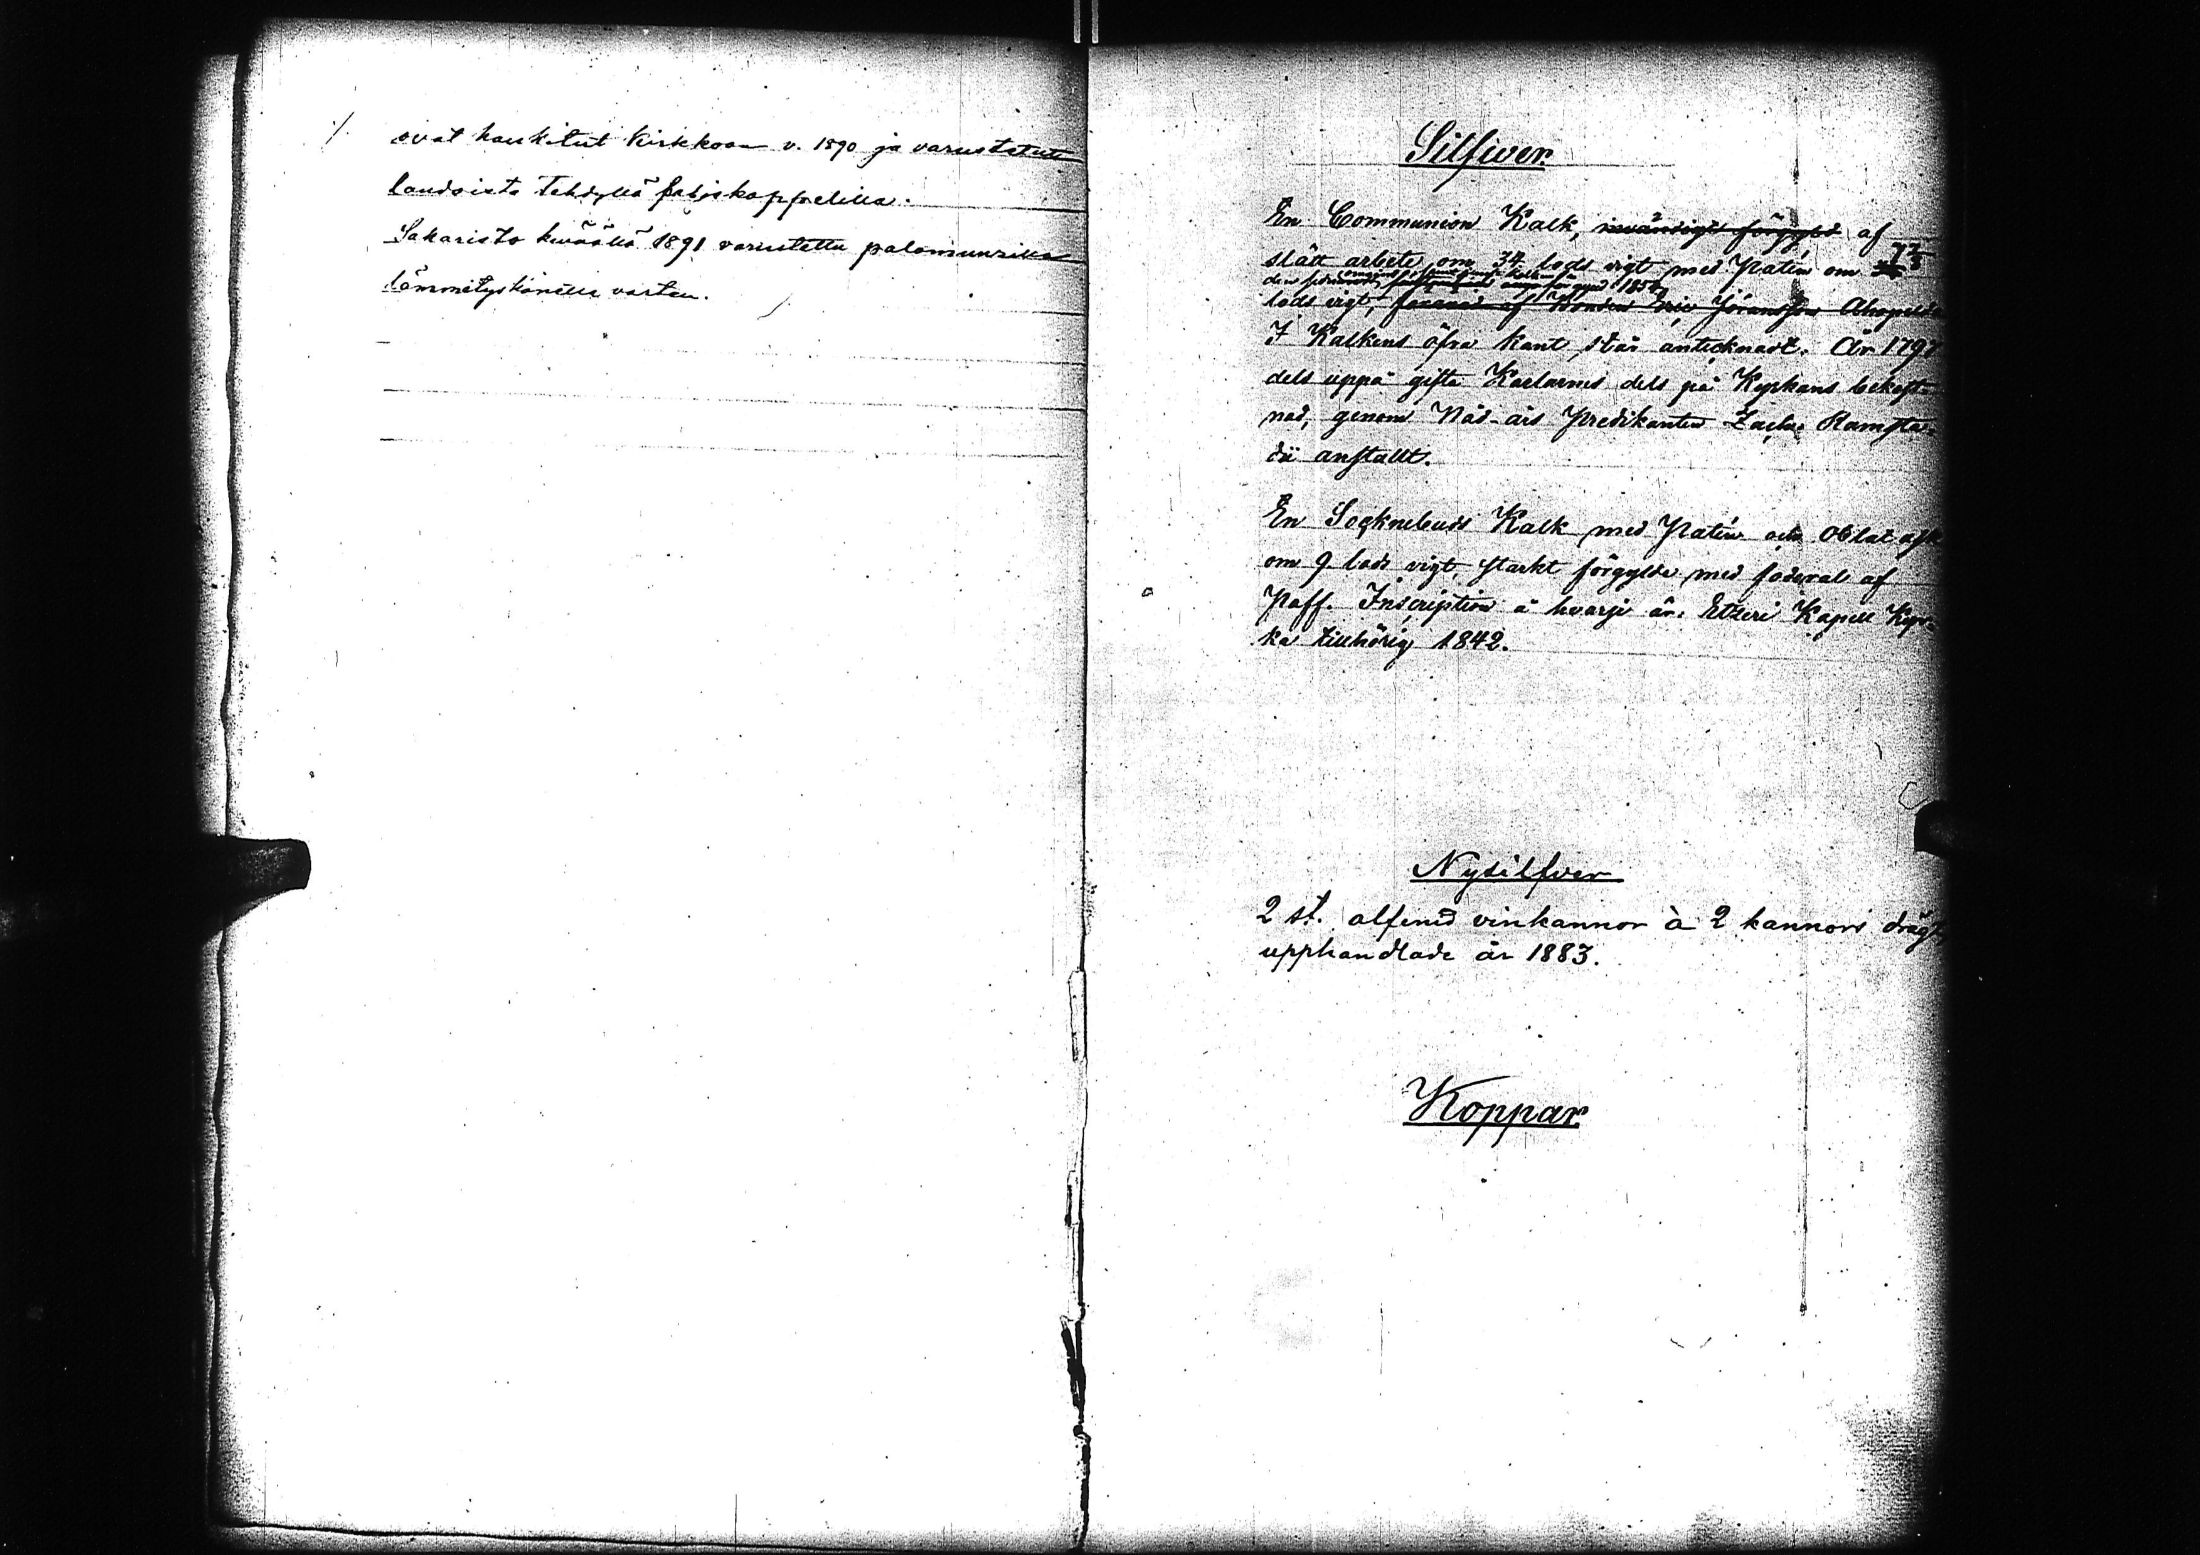 ./. ovat hankitut kirkkoon v. 1890 ja varustetut
laudoista tehdyllä
Sakaristo kesällä 1891 varustettu palomuurilla
lämmityskönellä varten.
Silfwer
En Communion Kalk, invändigt förgyld af
slätt arbete om 34 lods vigt med Patén om 7 2/3
lods vigt, förärad af Bonden Eric Jöransson Ahopelto
I Kalkens öfra kant står antecknadt. År 1797
dels uppå gifta Karlarnes dels på Kyrkans bekost-
nad, genom Nåd-års Predikanten Zachr. Ramsta-
dii anstallt.
En Socknebuds Kalk med Patén och Oblat ask
om 9 lods vigt, starkt förgylde med foderal af
Paff. Inscription å hvarje är: Etseri Kapell Kyr-
ka tillhörig 1842.
Nysilfver
2 st. alfenid vinkannor à 2 kannors drägt
upphandlade år 1883.
Koppar